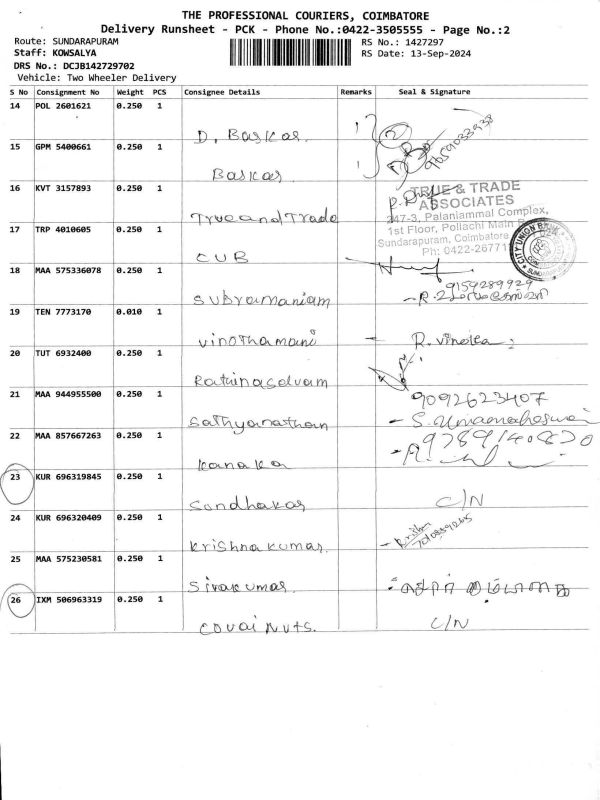 THE PROFESSIONAL COURIERS, COIMBATORE
Delivery Runsheet - PCK - Phone No.:0422-3505555 - Page No.:2
Route: SUNDARAPURAM RS No.: 1427297
Staff: KOWSALYA RS Date: 13-Sep-2024
DRS No.: DCJB142729702
Vehicle: Two Wheeler Delivery
S No Consignment No Weight PCS Consignee Details Remarks Seal & Signature
14 POL 2601621 0.250 1
D. Baskar
9659033938
15 GPM 5400661 0.250 1
Baskar
16 KVT 3157893 0.250 1
TRUE & TRADE
ASSOCIATES
247-3, Palaniammal Complex,
True and Trade
1st Floor, Pollachi Main
17 TRP 4010605 0.250 1
Sundarapuram, Coimbatore
Ph: 0422-26771
CITY UNION BANK
CUB
18 MAA 575336078 0.250 1
9159289929
Subramaniam
19 TEN 7773170 0.010 1
Vinothamani
R. Vinotha
20 TUT 6932400 0.250 1
Rathinaselvam
21 MAA 944955500 0.250 1
9092623407
Sathyanathan
S. Umamaheswari
22 MAA 857667263 0.250 1
9789140820
Kanaka
23 KUR 696319845 0.250 1
Sondhakar C/N
24 KUR 696320409 0.250 1
Krishna kumar
25 MAA 575230581 0.250 1
Sivakumar
26 IXM 506963319 0.250 1
Covai Nuts. C/N